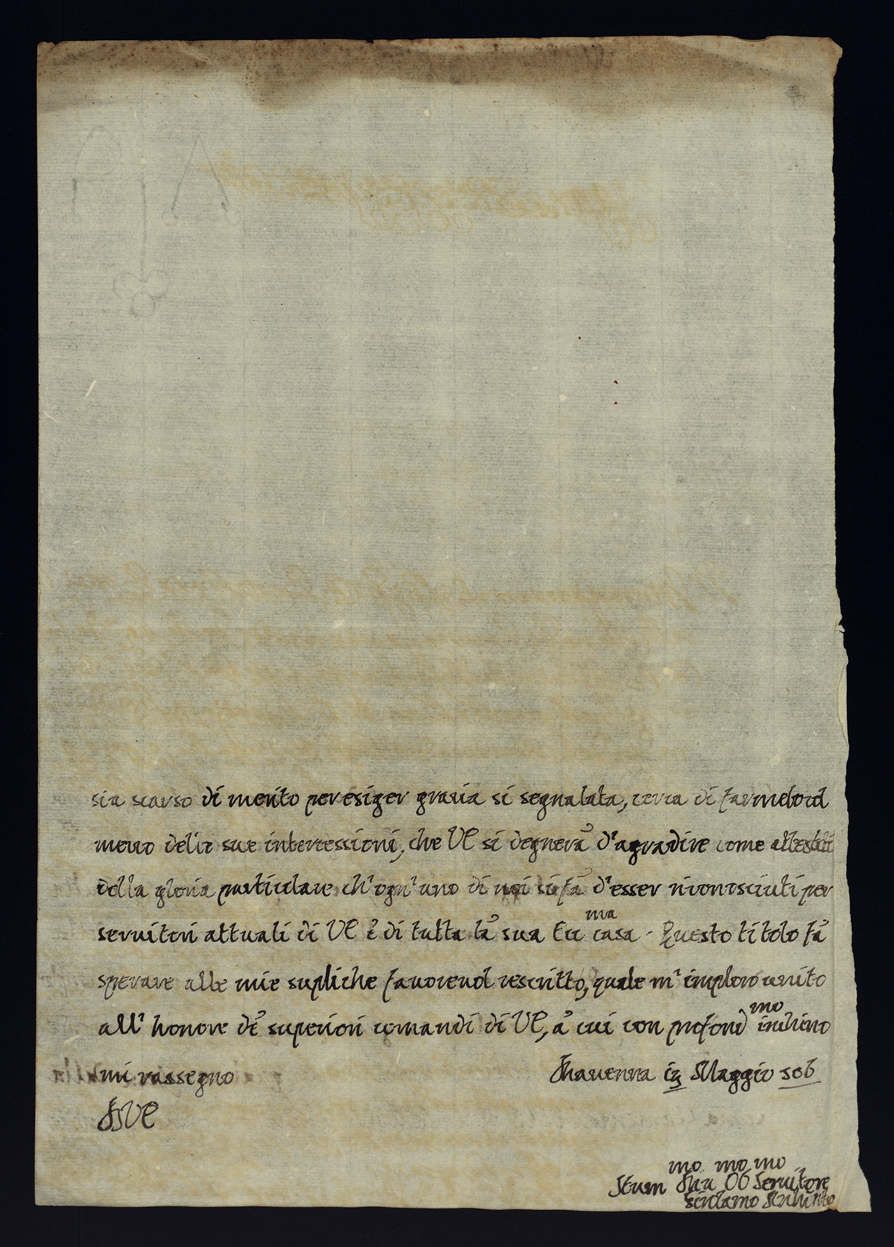 sia scarso di merito per esiger gratia si segnalata, cerca di farmelo il
mezzo delle sue intercessioni, che VE si degnerà d'agradire come
della gloria particolare ch'ogn'uno di noi si fà d'esser riconosciuti per
servitori attuali di VE è di tutta là sua Ecc ma casa. Questo titolo fà
sperare alle mie supliche favorevol rescritto, quale m'imploro unito
all'honore dè superiori comandi di VE, à cui con profond mo inchino
mi rassegno Ravenna 12 Maggio
DVE
mo mo mo
Servitore